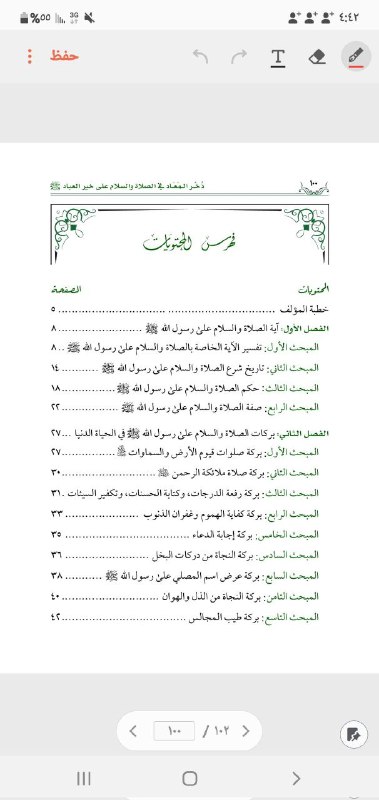 ٤:٤٢
3G
%٥٥
حفظ
T
١٠٠
ذُخْر المَعَاد في الصلاة والسلام على خير العباد ﷺ
فهرس المحتويات
المحتويات الصفحة
خطبة المؤلف ........................................................ ٥
الفصل الأول: آية الصلاة والسلام علىٰ رسول الله ﷺ ........................ ٨
المبحث الأول: تفسير الآية الخاصة بالصلاة والسلام علىٰ رسول الله ﷺ .. ٨
المبحث الثاني: تاريخ شرع الصلاة والسلام علىٰ رسول الله ﷺ ........... ١٤
المبحث الثالث: حكم الصلاة والسلام علىٰ رسول الله ﷺ .................. ١٨
المبحث الرابع: صفة الصلاة والسلام علىٰ رسول الله ﷺ .................. ٢٢
الفصل الثاني: بركات الصلاة والسلام علىٰ رسول الله ﷺ في الحياة الدنيا ... ٢٧
المبحث الأول: بركة صلوات قيوم الأرض والسماوات ................. ٢٧
المبحث الثاني: بركة صلاة ملائكة الرحمن ........................... ٣٠
المبحث الثالث: بركة رفعة الدرجات، وكتابة الحسنات، وتكفير السيئات . ٣١
المبحث الرابع: بركة كفاية الهموم وغفران الذنوب .................... ٣٣
المبحث الخامس: بركة إجابة الدعاء .................................. ٣٥
المبحث السادس: بركة النجاة من دركات البخل ....................... ٣٦
المبحث السابع: بركة عرض اسم المصلي علىٰ رسول الله ﷺ ............ ٣٨
المبحث الثامن: بركة النجاة من الذل والهوان .......................... ٤٠
المبحث التاسع: بركة طيب المجالس .................................. ٤٢
١٠٠ / ١٠٢